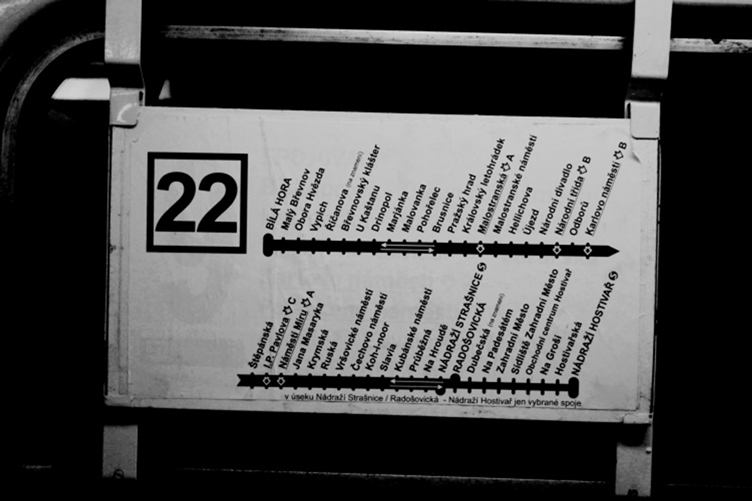 22
BÍLÁ HORA
Malý Břevnov
Obora Hvězda
Vypich
Říčanova (na znamení)
Břevnovský klášter
U Kaštanu
Drinopol
Marjánka
Malovanka
Pohořelec
Brusnice
Pražský hrad
Královský letohrádek
Malostranská A
Malostranské náměstí
Hellichova
Újezd
Národní divadlo
Národní třída B
Odborů
Karlovo náměstí B
Štěpánská
I.P. Pavlova C
Náměstí Míru A
Jana Masaryka
Krymská
Ruská
Vršovické náměstí
Čechovo náměstí
Koh-i-noor
Slavia
Kubánské náměstí
Průběžná
Na Hroudě
NÁDRAŽÍ STRAŠNICE S
RADOŠOVICKÁ
Dubečská (na znamení)
Na Padesátém
Zahradní Město
Sídliště Zahradní Město
Obchodní centrum Hostivař
Na Groši
Hostivařská
NÁDRAŽÍ HOSTIVAŘ S
v úseku Nádraží Strašnice / Radošovická - Nádraží Hostivař jen vybrané spoje